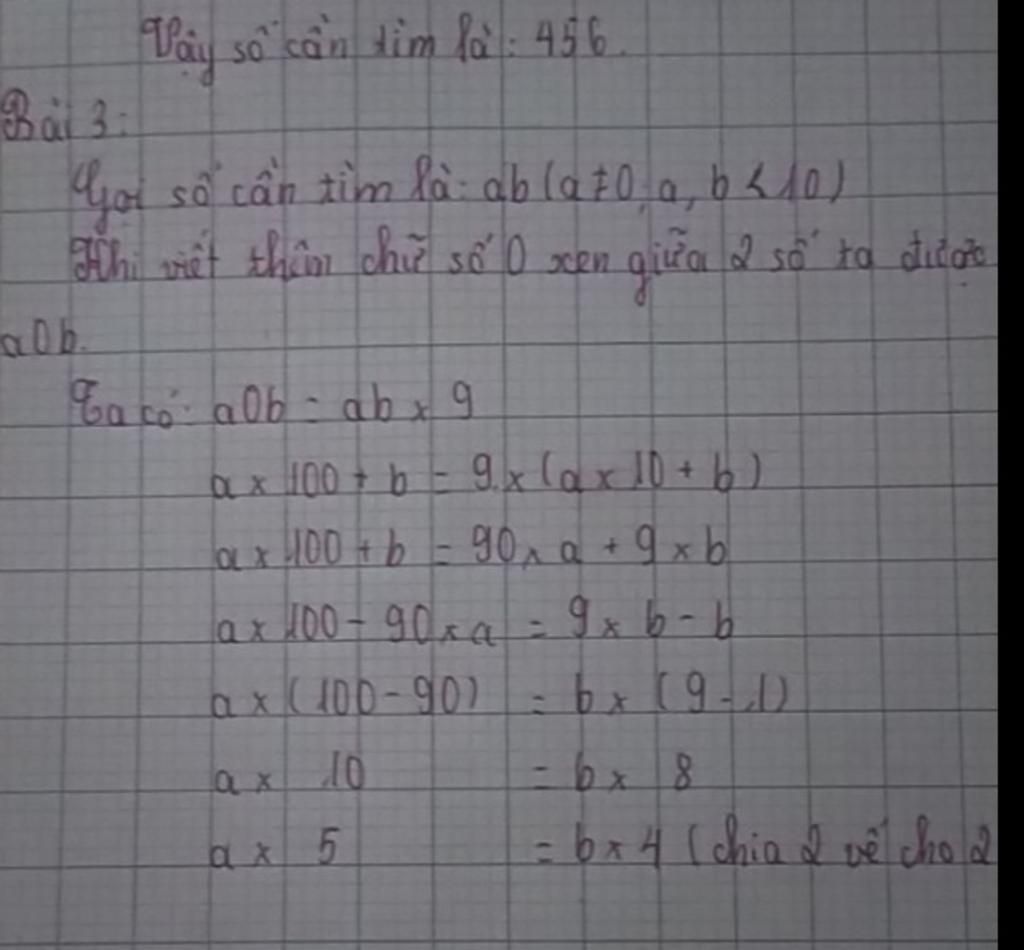 Vậy số cần tìm là: 456.
Bài 3:
Gọi số cần tìm là: ab (a ≠ 0; a, b < 10)
Khi viết thêm chữ số 0 xen giữa 2 số ta được
a0b.
Ta có: a0b = ab × 9
a × 100 + b = 9 × (a × 10 + b)
a × 100 + b = 90 × a + 9 × b
a × 100 - 90 × a = 9 × b - b
a × (100 - 90) = b × (9 - 1)
a × 10 = b × 8
a × 5 = b × 4 (chia 2 vế cho 2